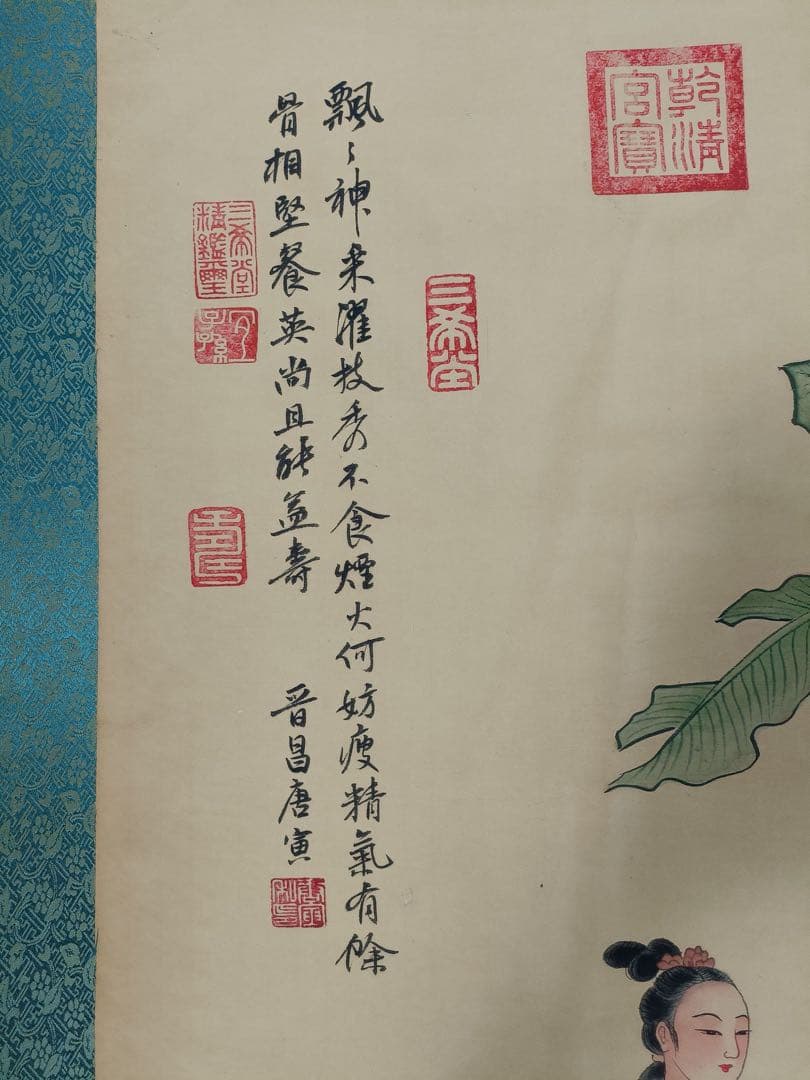 乾清宮寶
三希堂
飄〻神采濯枝秀不食煙火何妨瘦精氣有餘
骨相堅餐英尚且能益壽 晉昌唐寅
唐寅私印
三希堂精鑑璽
宜子孫